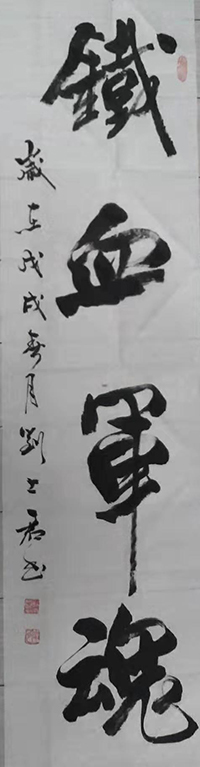 鐵血軍魂
歲在戊戌春月劉士君书